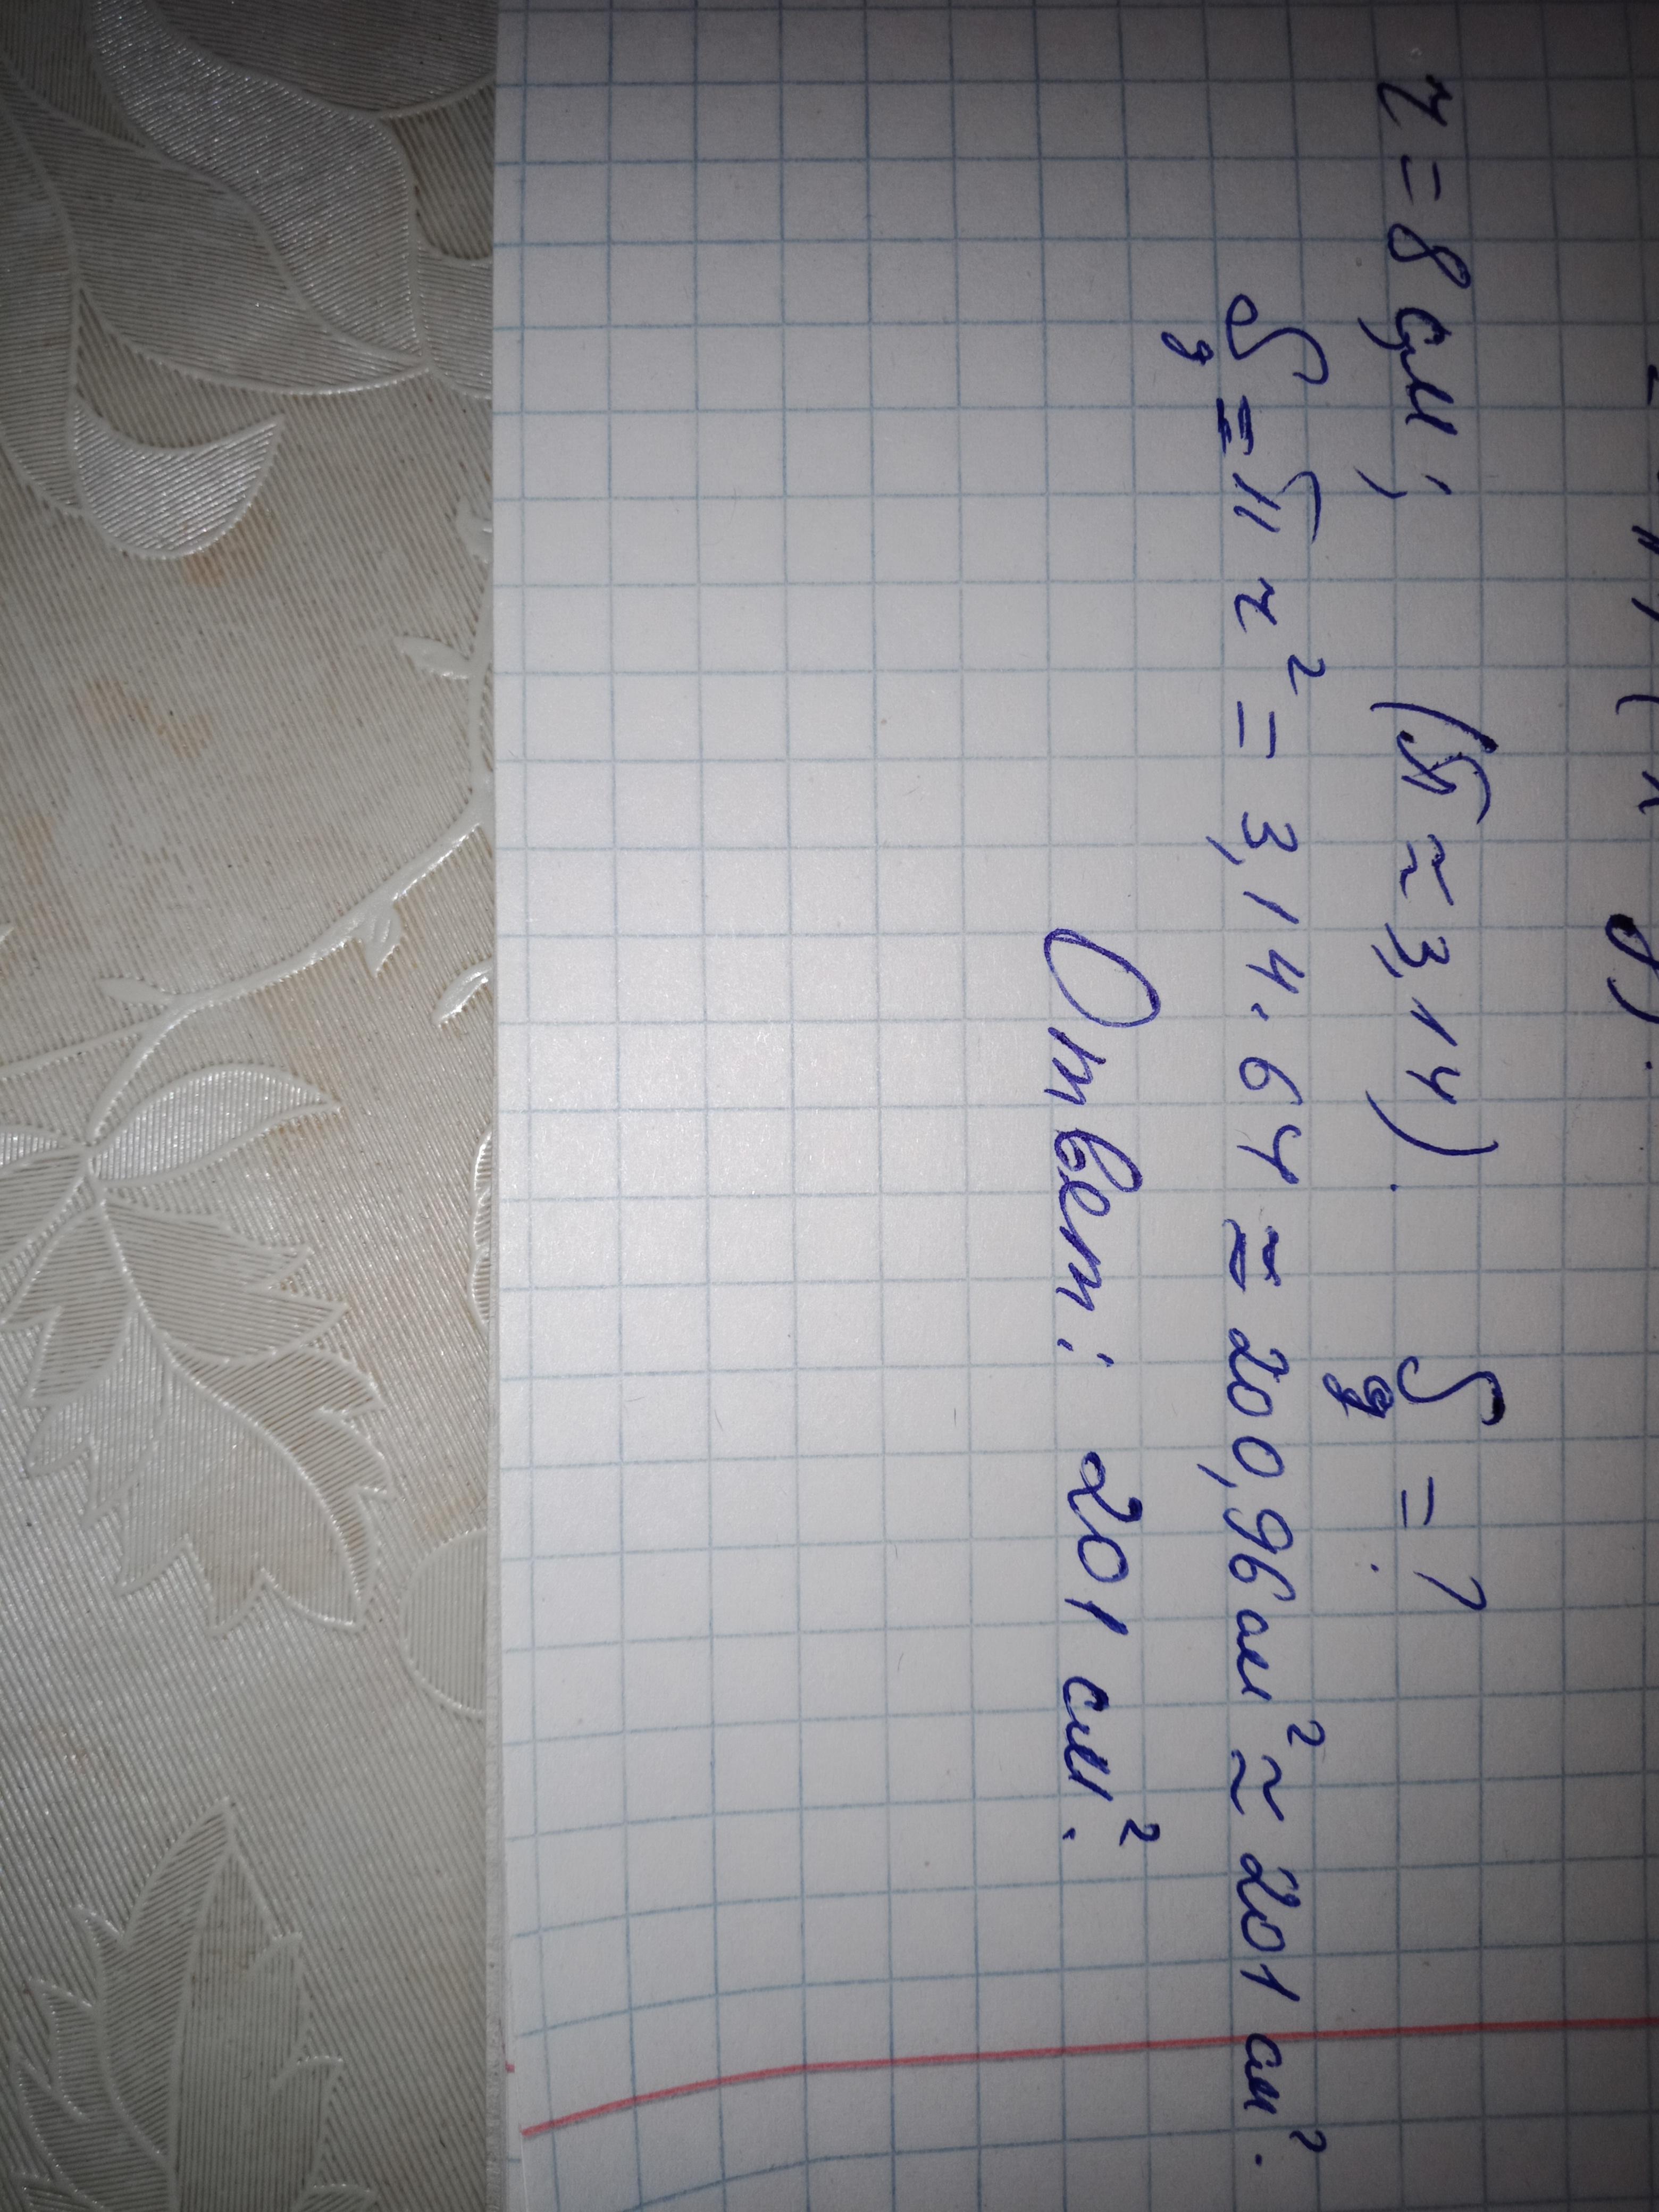 r = 8 см; (π ≈ 3,14). S = ?
S = π r² = 3,14 · 64 ≈ 200,96 см² ≈ 201 см².
Ответ: 201 см².